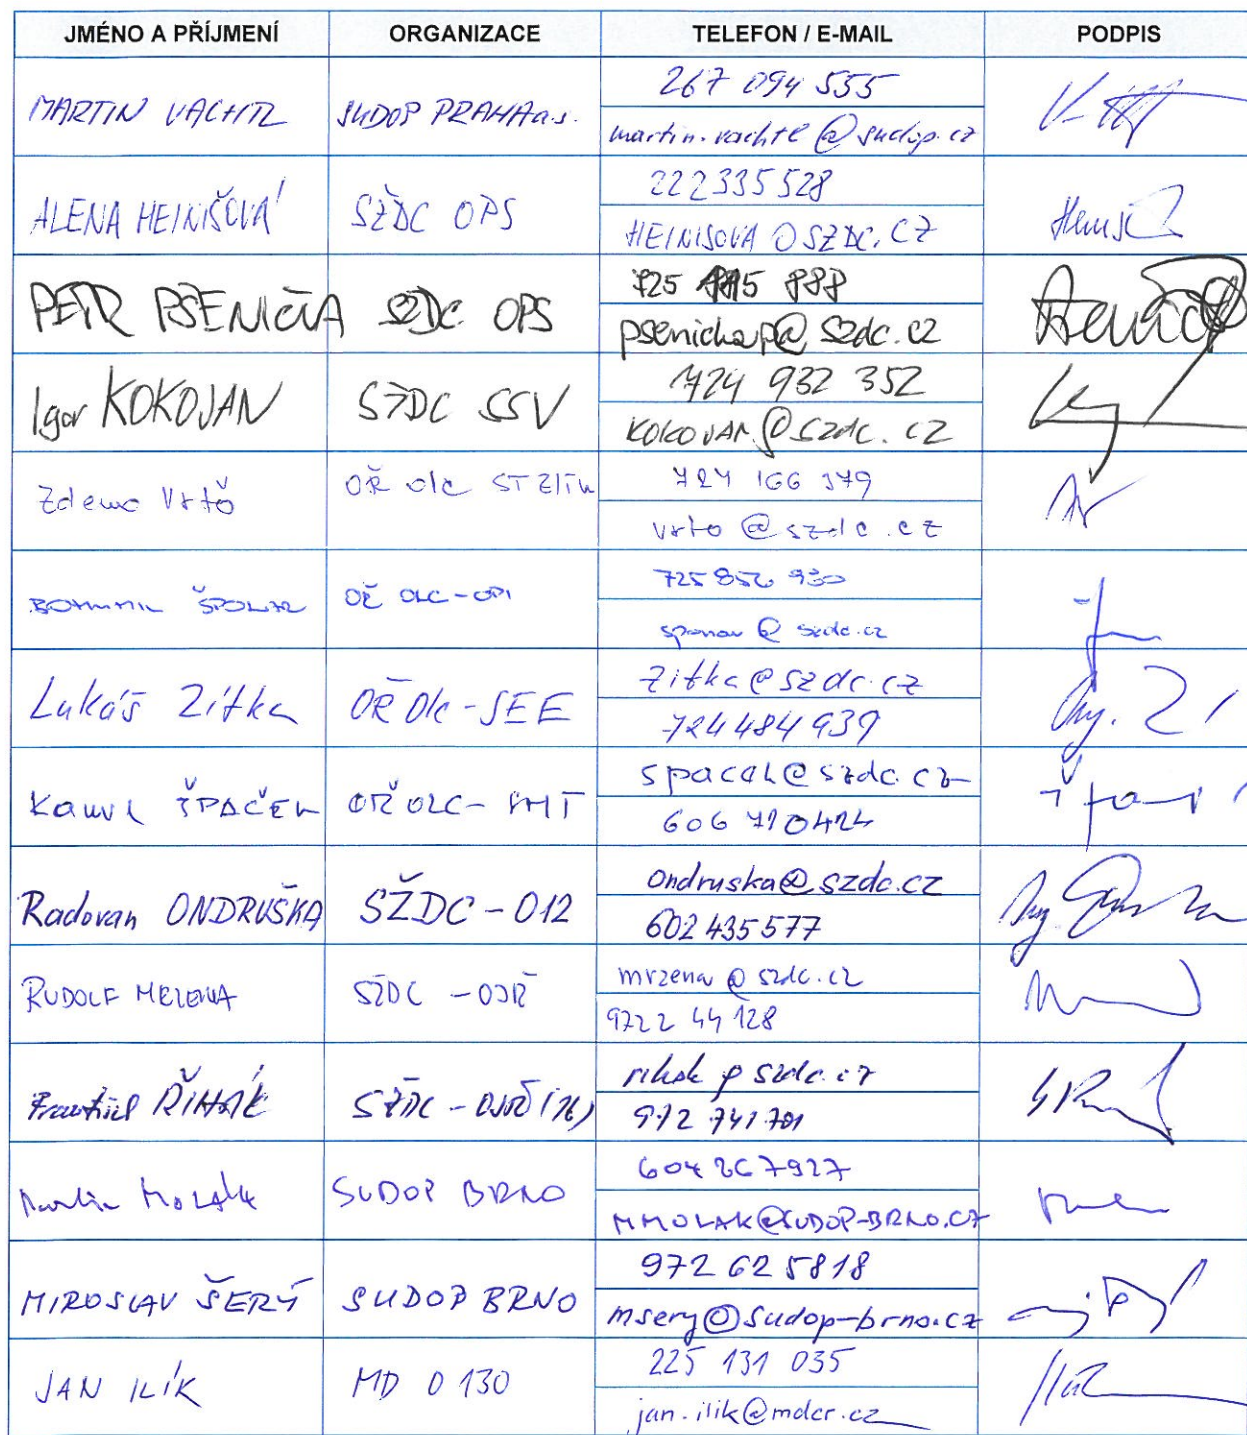 JMÉNO A PŘÍJMENÍ ORGANIZACE TELEFON / E-MAIL PODPIS
MARTIN VACHTL SUDOP PRAHA a.s. 267 094 555
martin.vachtl@sudop.cz
ALENA HEINIŠOVÁ SŽDC OPS 222335528
HEINISOVA@SZDC.CZ
PETR PŠENIČKA SŽDC OPS 725 888
psenickap@szdc.cz
Igor KOKOJAN SŽDC SSV 724 932 352
KOKOJAN@szdc.cz
Zdeno Vrtő OŘ Olc ST Zlín 724 166 379
vrto@szdc.cz
OŘ OLC-OPI 725 856 930
@szdc.cz
Lukáš Zitka OŘ Olc-SEE zitka@szdc.cz
724484939
Kamil ŠPAČEK OŘ OLC- spacek@szdc.cz
606 710424
Radovan ONDRUŠKA SŽDC-O12 ondruska@szdc.cz
Ing.
602 435 577
RUDOLF MRZENA SŽDC - mrzena@szdc.cz
9722 44 128
František ŘIHÁK SŽDC - rihak@szdc.cz
972 741 701
Martin MOLÁK SUDOP BRNO 604 267927
MMOLAK@SUDOP-BRNO.CZ
MIROSLAV ŠERÝ SUDOP BRNO 972 62 5818
msery@sudop-brno.cz
JAN ILÍK MD O 130 225 131 035
jan.ilik@mdcr.cz